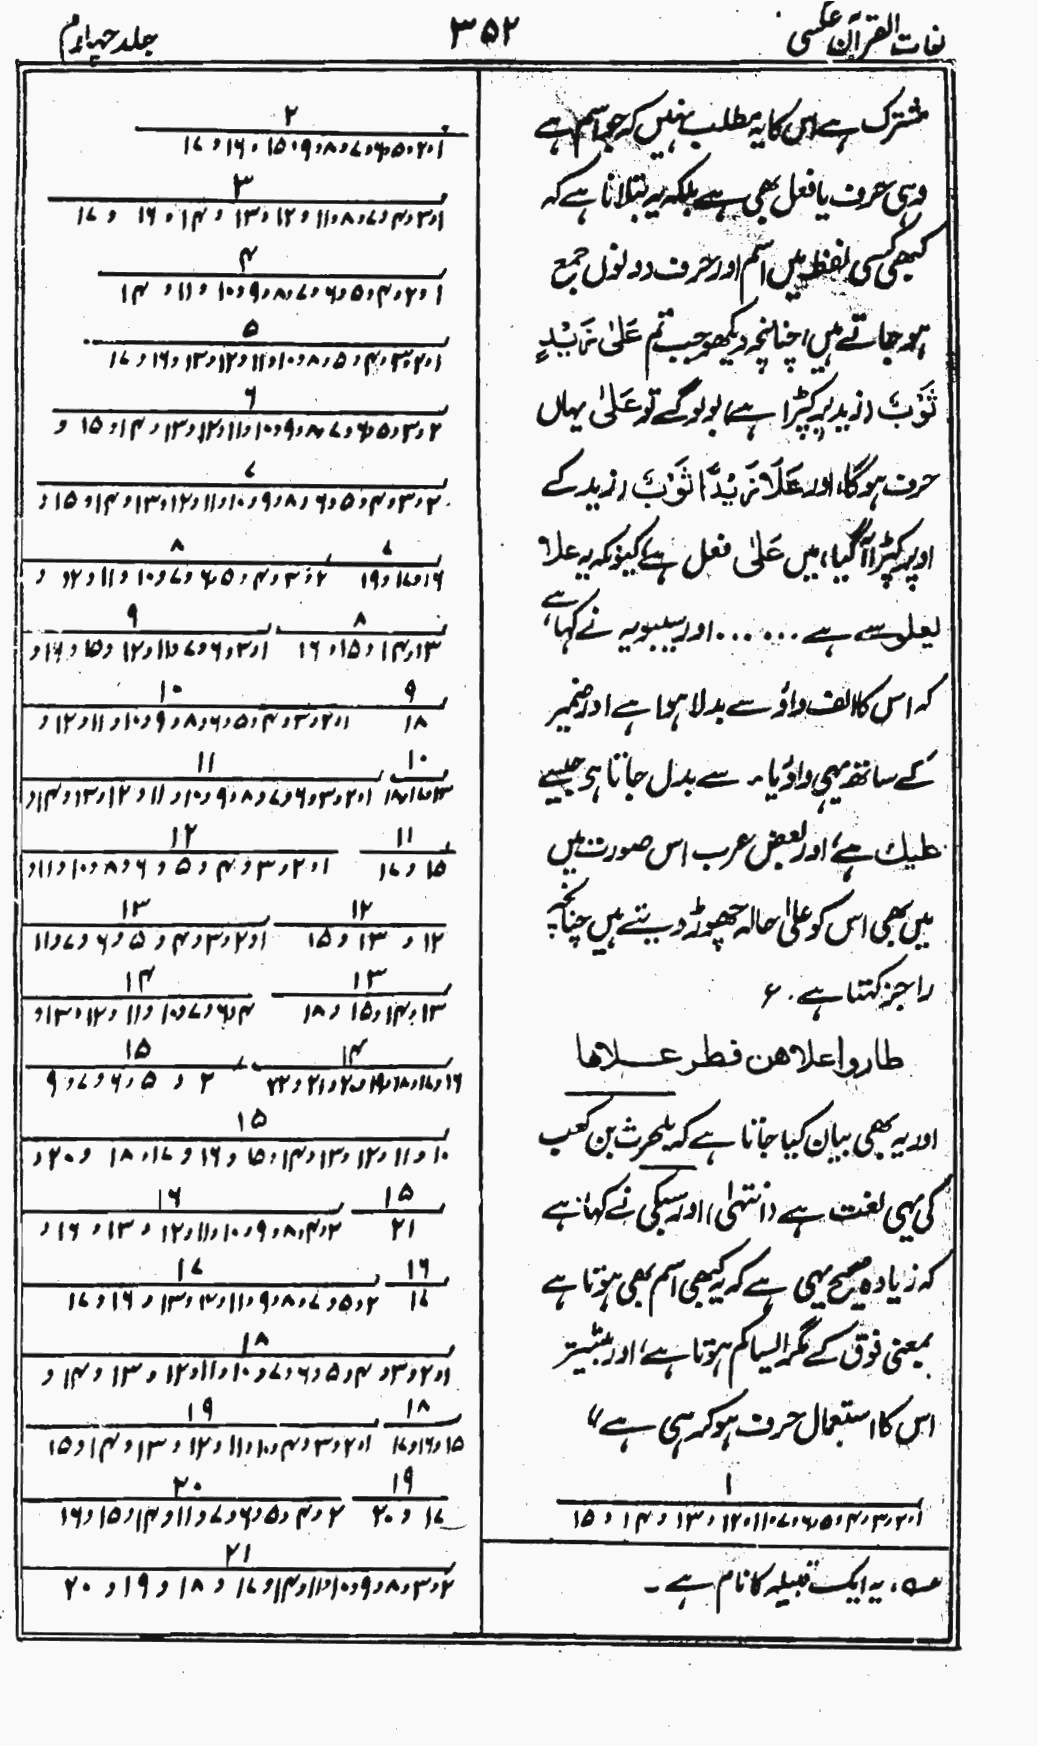 لغات القرآن عکسی
۳۵۲
جلد چہارم
مشترک ہے اس کا یہ مطلب نہیں کہ جو اسم ہے
وہی حرف یا فعل بھی ہے بلکہ یہ بتلانا ہے کہ
کبھی کسی لفظ میں اسم اور حرف دونوں جمع
ہو جاتے ہیں، چنانچہ دیکھو جب تم عَلیٰ زَیْدٍ
ثَوْبٌ (زید پر کپڑا ہے) بولو گے تو عَلیٰ یہاں
حرف ہوگا، اور عَلَا زَیْدًا ثَوْبٌ (زید کے
اوپر کپڑا آگیا) میں عَلیٰ فعل ہے، کیونکہ یہ علا
یعلو سے ہے ...... اور سیبویہ نے کہا ہے
کہ اس کا الف واؤ سے بدلا ہوا ہے اور ضمیر
کے ساتھ یہی واؤ یاء سے بدل جاتا ہی جیسے
علیك ہے، اور بعض عرب اس صورت میں
میں بھی اس کو علیٰ حالہ چھوڑ دیتے ہیں چنانچہ
راجز کہتا ہے . ع
طاروا علاهن فطر عــلاها
اور یہ بھی بیان کیا جاتا ہے کہ بلحرث بن کعب
کی یہی لغت ہے (انتہیٰ) اور سبکی نے کہا ہے
کہ زیادہ صحیح یہی ہے کہ یہ کبھی اسم بھی ہوتا ہے
بمعنی فوق کے مگر ایسا کم ہوتا ہے، اور بیشتر
اس کا استعمال حرف ہو کر ہی ہے "
۱
۱،۲،۳،۴،۵،۶،۷،۱۱،۱۲، ۱۳، ۱۴، ۱۵
عہ، یہ ایک قبیلہ کا نام ہے ۔
۲
۱،۲،۵،۶،۷،۸،۹،۱۵، ۱۶، ۱۷
۳
۱،۳،۴،۷،۸،۱۱، ۱۲، ۱۳ ، ۱۴، ۱۶ ، ۱۷
۴
۱،۲،۴،۵،۶،۷،۸،۹،۱۰، ۱۱، ۱۴
۵
۱،۲،۳،۴، ۵،۸،۱۰،۱۱،۱۲،۱۳،۱۶،۱۷
۶
۲،۳،۵،۶،۷،۸،۹،۱۰،۱۱،۱۲،۱۳،۱۴، ۱۵ ،
۷
۲،۳،۴،۵،۶،۸،۹،۱۰،۱۱،۱۲،۱۳،۱۴، ۱۵،
۷ ۸
۱۶،۱۷،۱۹ ۲،۳،۴،۵،۶،۷،۱۰،۱۱، ۱۲ ،
۸ ۹
۱۳،۱۴،۱۵، ۱۶ ۱،۳،۶،۷،۱۱،۱۲،۱۵،۱۶،
۹ ۱۰
۱۸ ۱،۲،۳،۴،۵،۶،۸،۹،۱۰،۱۱،۱۲،
۱۰ ۱۱
۱۳،۱۷،۱۸ ۱،۲،۳،۶،۷،۸،۹،۱۰، ۱۱ ،۱۲،۱۳،۱۴،
۱۱ ۱۲
۱۵ ، ۱۷ ۱،۲،۳، ۴، ۵، ۶،۸،۱۰،۱۱،
۱۲ ۱۳
۱۲ ، ۱۳ ، ۱۵ ۱،۲،۳،۴، ۵، ۶،۷،۱۱
۱۳ ۱۴
۱۳،۱۴،۱۵، ۱۸ ۴،۶،۷،۱۰، ۱۱، ۱۲،۱۳،
۱۴ ۱۵
۱۶،۱۷،۱۸،۱۹،۲۰،۲۱،۲۲ ۲ ، ۵ ،۶،۷،۹
۱۵
۱۰،۱۱،۱۲،۱۳،۱۴،۱۵، ۱۶ ، ۱۷،۱۸ ،۲۰،
۱۵ ۱۶
۲۱ ۲،۴،۸،۹،۱۰،۱۱،۱۲، ۱۳ ، ۱۶ ،
۱۶ ۱۷
۱۷ ۲،۵،۷،۸،۹،۱۱،۱۲،۱۳،۱۶، ۱۷
۱۸
۱،۲،۳، ۴،۵،۶،۷،۱۰،۱۱،۱۲، ۱۳ ، ۱۴ ،
۱۸ ۱۹
۱۵،۱۶،۱۷ ۱،۲،۳،۴،۱۰،۱۱، ۱۲، ۱۳،۱۴،۱۵
۱۹ ۲۰
۱۷ ، ۲۰ ۲،۴،۵،۶،۷،۱۱،۱۴،۱۵،۱۶
۲۱
۲،۳،۸،۹،۱۰،۱۱،۱۴،۱۷ ، ۱۸ ، ۱۹ ، ۲۰